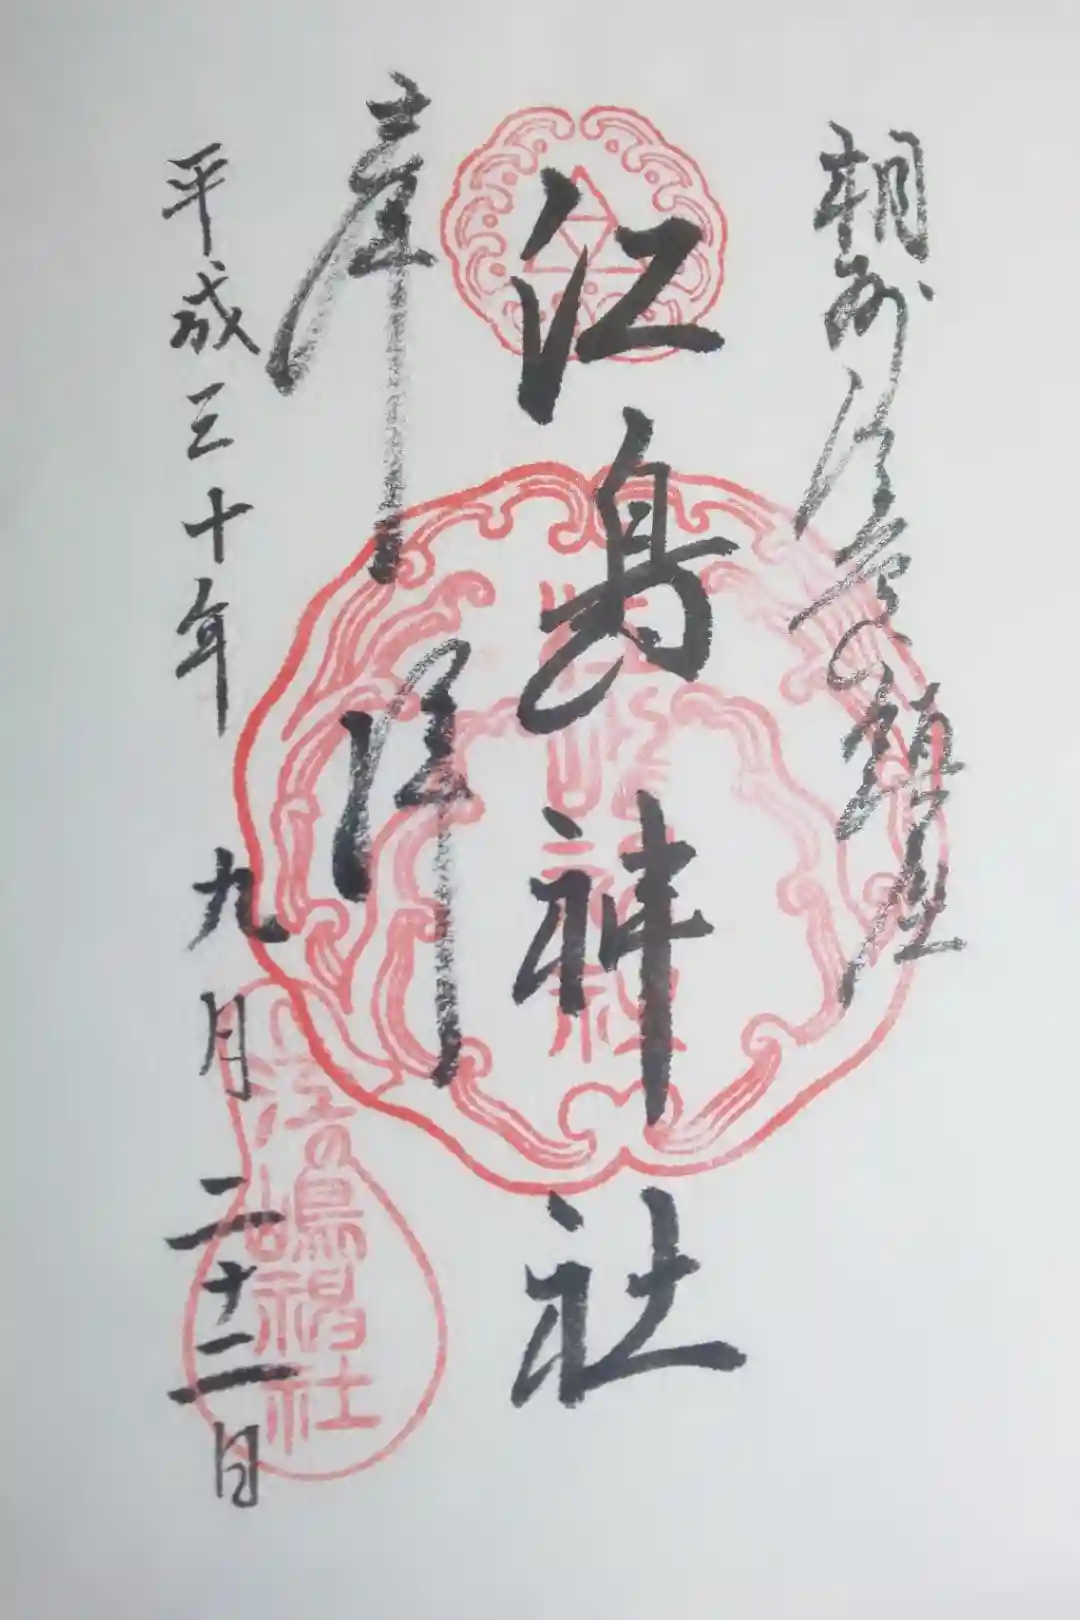 相州江の鎮座
江島神社
奉拝
平成三十年九月二十二日
江島神社
江の嶋神社